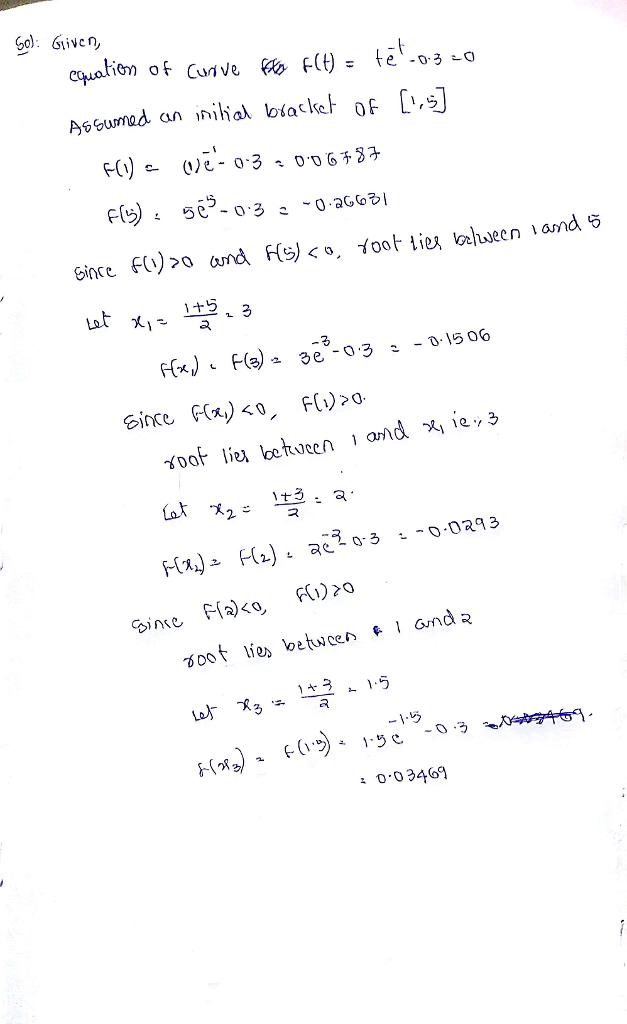 Sol: Given,
equation of curve f(t) = te^-t -0.3 =0
Assumed an initial bracket of [1,5]
f(1) = (1)e^-1 - 0.3 = 0.06787
f(5) = 5e^-5 - 0.3 = -0.26631
Since f(1)>0 and f(5)<0, root lies between 1 and 5
Let x₁ = (1+5)/2 = 3
f(x₁) = f(3) = 3e^-3 - 0.3 = -0.1506
Since f(x₁)<0, f(1)>0.
root lies between 1 and x₁ ie., 3
Let x₂ = (1+3)/2 = 2.
f(x₂) = f(2) = 2e^-2 - 0.3 = -0.0293
Since f(2)<0, f(1)>0
root lies between 1 and 2
Let x₃ = (1+3)/2 = 1.5
f(x₃) = f(1.5) = 1.5e^-1.5 - 0.3
= 0.03469